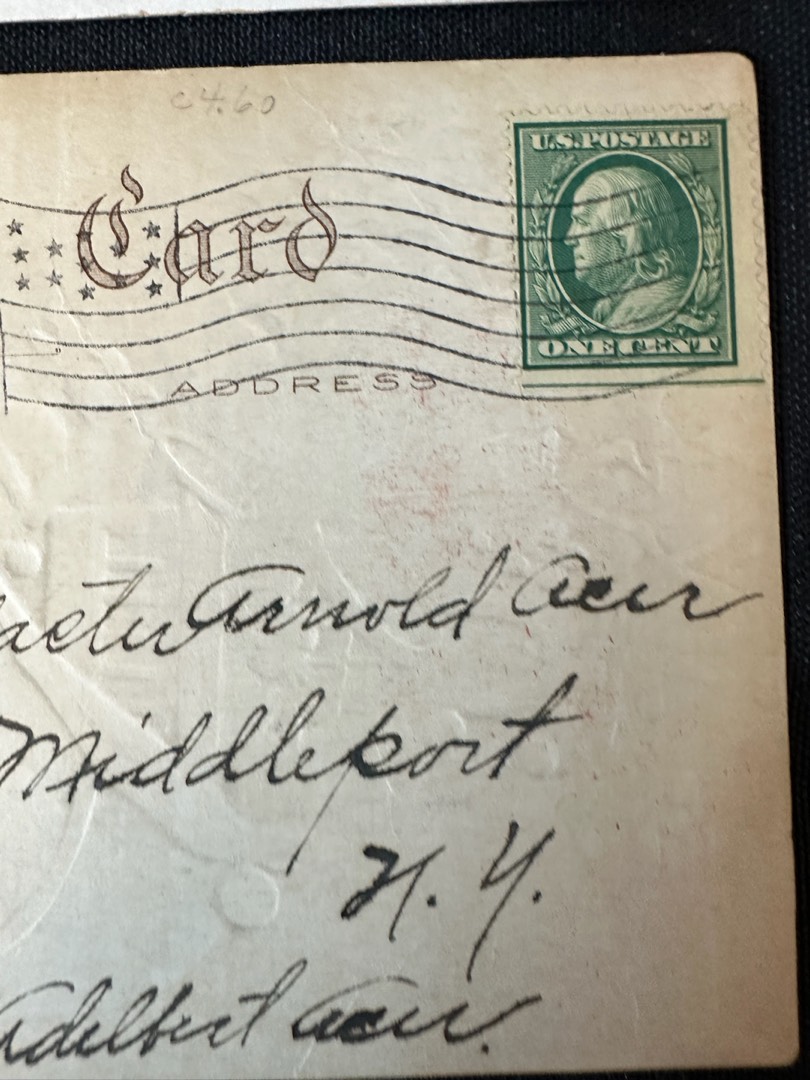 c4.60
U.S. POSTAGE
Card
ONE CENT
ADDRESS
Arnold Acer
Middleport
N. Y.
Adelbert Acer.